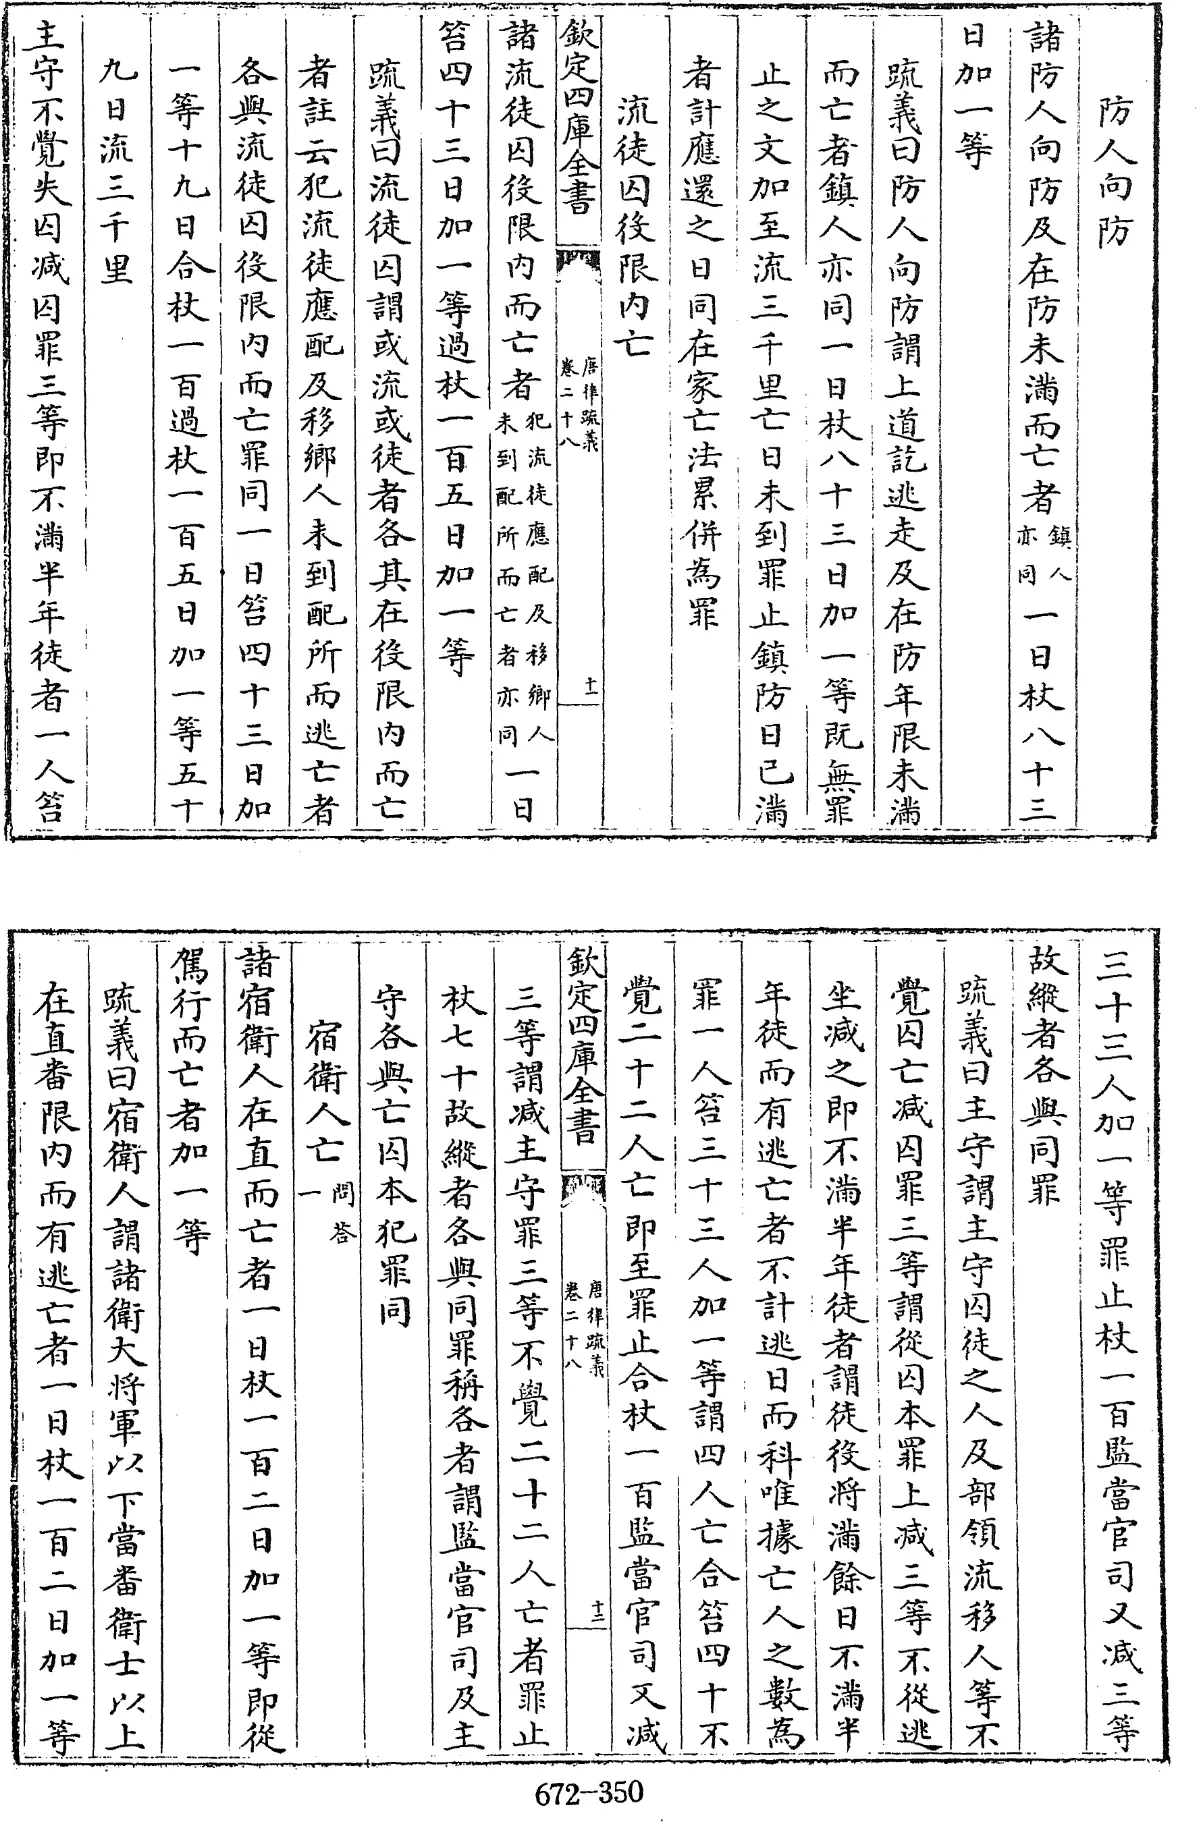 防人向防
諸防人向防及在防未滿而亡者鎮人亦同一日杖八十三
日加一等
疏義曰防人向防謂上道訖逃走及在防年限未滿
而亡者鎮人亦同一日杖八十三日加一等既無罪
止之文加至流三千里亡日未到罪止鎮防日已滿
者計應還之日同在家亡法累併為罪
流徒囚役限內亡
欽定四庫全書
唐律疏義
卷二十八
十一
諸流徒囚役限內而亡者犯流徒應配及移鄉人未到配所而亡者亦同一日
笞四十三日加一等過杖一百五日加一等
疏義曰流徒囚謂或流或徒者各其在役限內而亡
者註云犯流徒應配及移鄉人未到配所而逃亡者
各與流徒囚役限內而亡罪同一日笞四十三日加
一等十九日合杖一百過杖一百五日加一等五十
九日流三千里
主守不覺失囚減囚罪三等即不滿半年徒者一人笞
三十三人加一等罪止杖一百監當官司又減三等
故縱者各與同罪
疏義曰主守謂主守囚徒之人及部領流移人等不
覺囚亡減囚罪三等謂從囚本罪上減三等不從逃
坐減之即不滿半年徒者謂徒役將滿餘日不滿半
年徒而有逃亡者不計逃日而科唯據亡人之數為
罪一人笞三十三人加一等謂四人亡合笞四十不
覺二十二人亡即至罪止合杖一百監當官司又減
欽定四庫全書
唐律疏義
卷二十八
十二
三等謂減主守罪三等不覺二十二人亡者罪止
杖七十故縱者各與同罪稱各者謂監當官司及主
守各與亡囚本犯罪同
宿衛人亡問答一
諸宿衛人在直而亡者一日杖一百二日加一等即從
駕行而亡者加一等
疏義曰宿衛人謂諸衛大將軍以下當番衛士以上
在直番限內而有逃亡者一日杖一百二日加一等
672-350